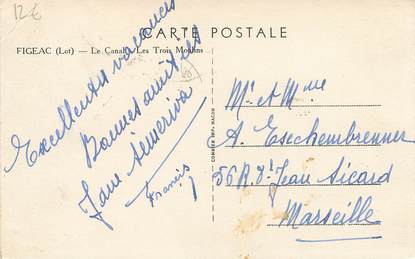 12€
CARTE POSTALE
FIGEAC (Lot) — Le Canal - Les Trois Moulins
Excellentes vacances
Bonnes amitiés
Jane
Francis
COMBIER IMP. MACON
Mr et Mme
A. Eschembrenner
56 R. St Jean Sicard
Marseille